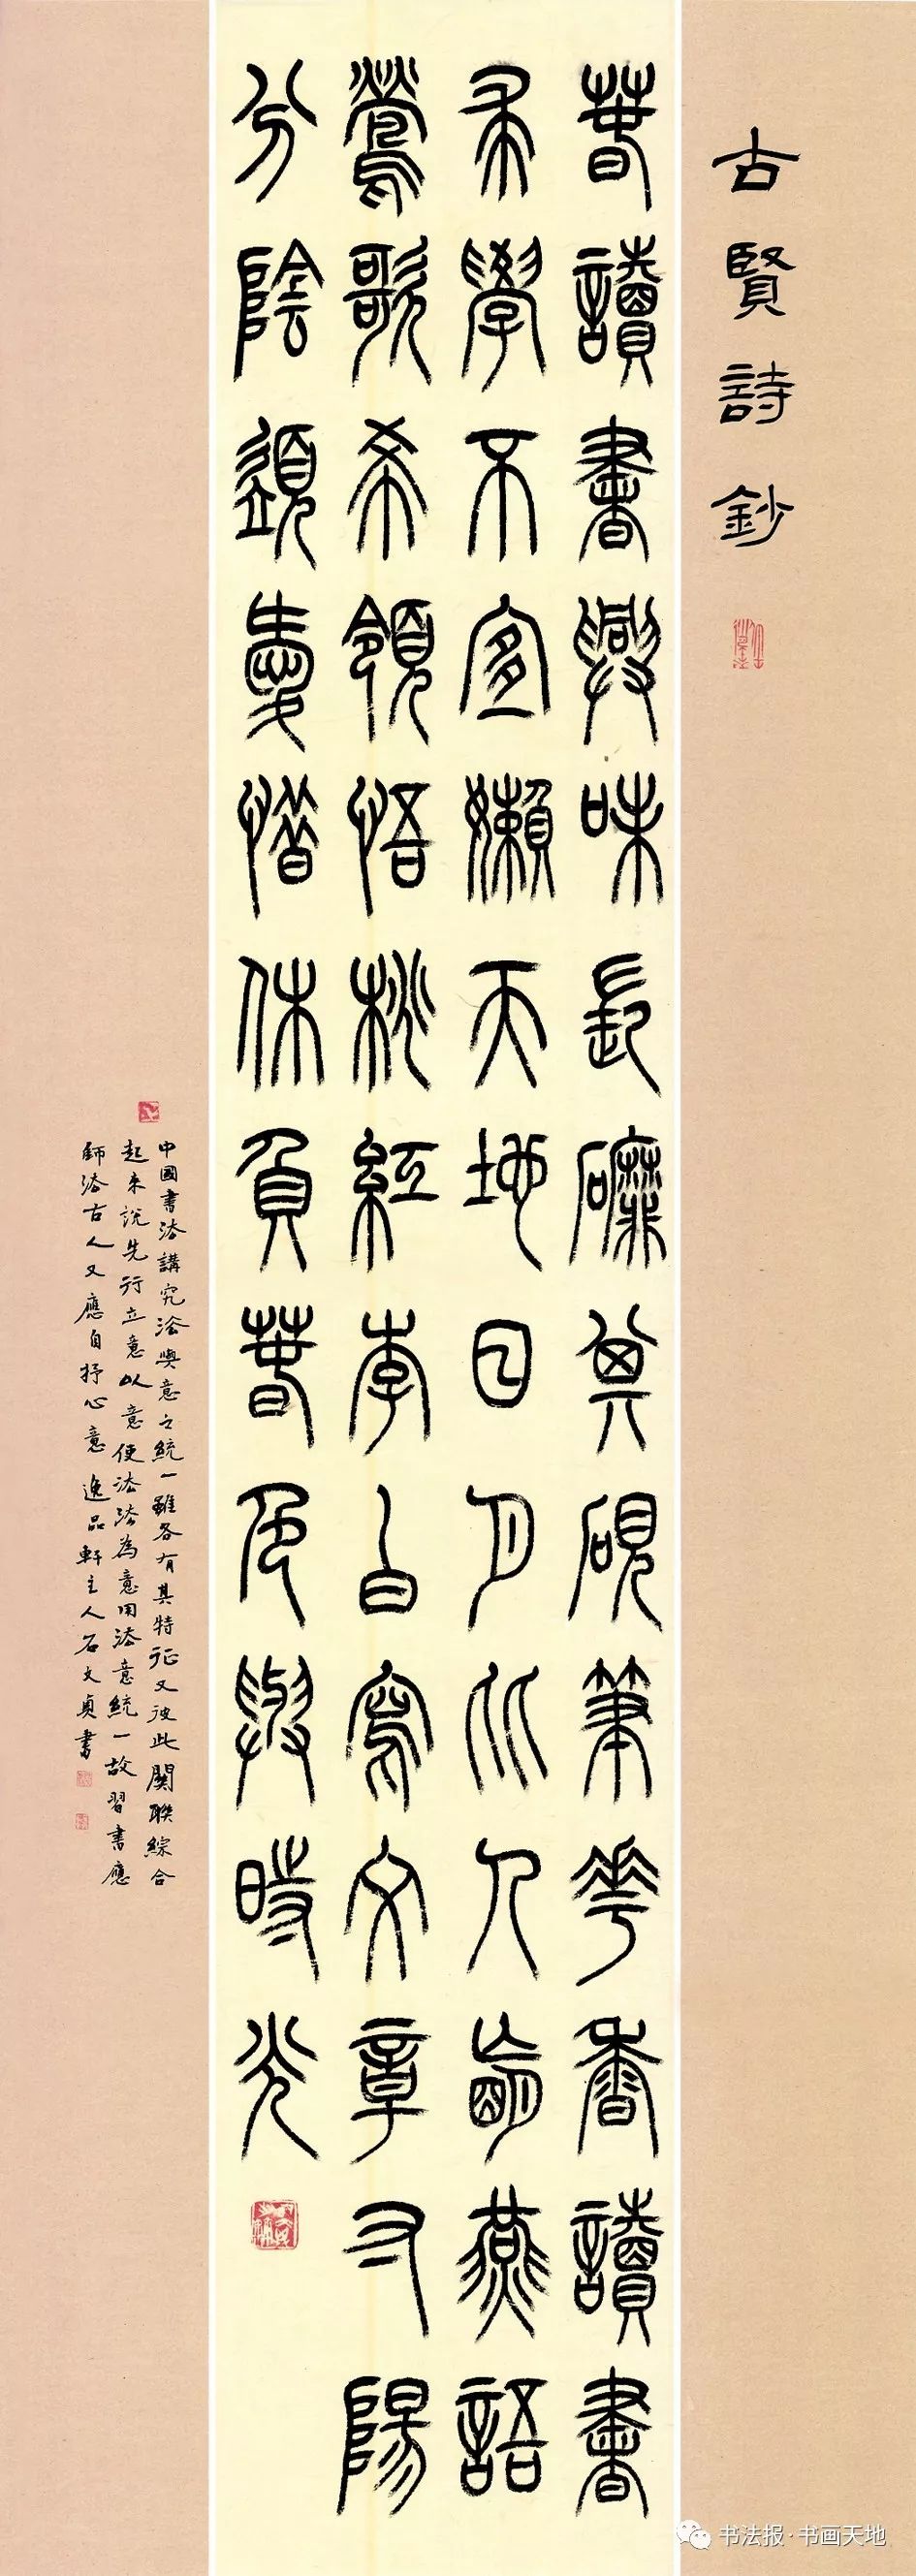 古賢詩鈔
春讀書興味長磨其硯筆花香讀書
求學不宜嬾天地日月比人忙燕語
鶯歌希領悟桃紅李白寫文章寸陽
分陰須愛惜休負春色與時光
中國書法講究法與意之統一雖各有其特征又彼此關聯綜合
起來說先行立意以意使法法為意用法意統一故習書應
師法古人又應自抒心意逸品軒主人石文貞書
书法报·书画天地